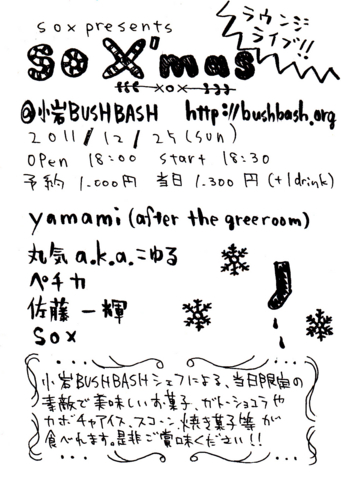 sox presents
ラウンジ
ライブ!!
so X'mas
xox
@小岩BUSHBASH http://bushbash.org
2011/12/25(sun)
open 18:00 start 18:30
予約 1.000円 当日 1.300円 (+1drink)
yamami (after the greeroom)
丸気 a.k.a.こゆる
ペチカ
佐藤一輝
sox
小岩BUSHBASHシェフによる、当日限定の
素敵で美味しいお菓子、ガトーショコラや
カボチャアイス、スコーン、焼き菓子等が
食べれます。是非ご賞味ください!!